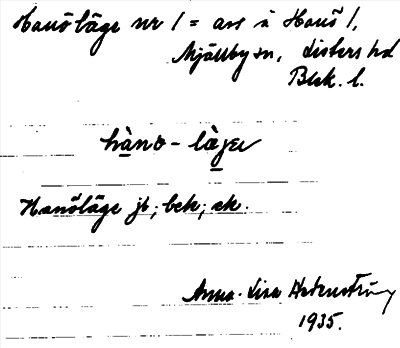 Hanöläge nr 1 = avs å Hanö 1,
Mjällby sn, Listers hd
Blek. l.
hànö - làgər
Hanöläge jb; bek; ek.
Anna-Lisa Hedenström
1935.